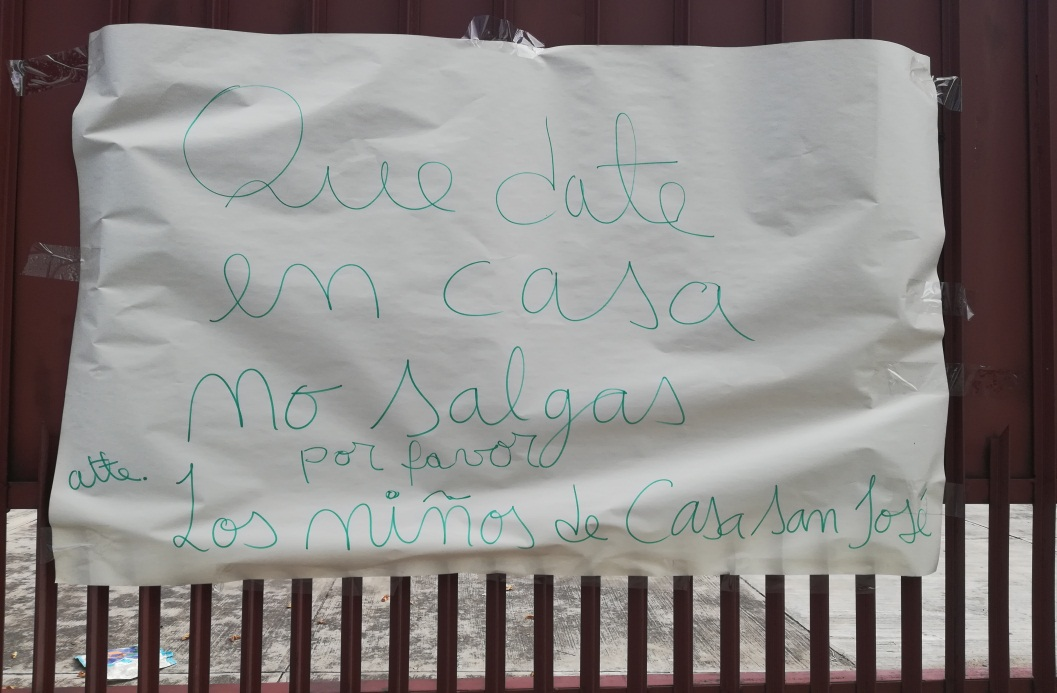 Que date
en casa
no salgas
por favor
atte. Los niños de Casa San José